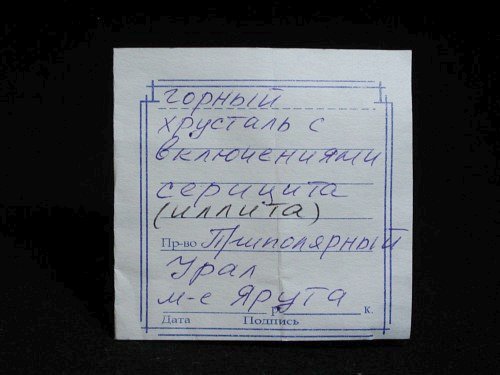 горный
хрусталь с
включениями
серицита
(иллита)
Пр-во Приполярный
Урал
м-е Ярута
р. к.
Дата Подпись